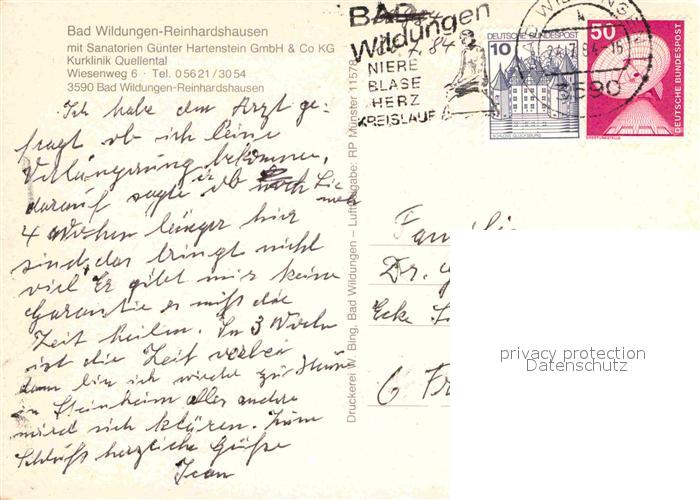 Bad Wildungen-Reinhardshausen
mit Sanatorien Günter Hartenstein GmbH & Co KG
Kurklinik Quellental
Wiesenweg 6 · Tel. 05621/3054
3590 Bad Wildungen-Reinhardshausen
Ich habe den Arzt ge-
fragt ob ich keine
Verlängerung bekommen,
darauf sagte er ob noch Sie
noch
4 Wochen länger hier
sind, das bringt nicht
viel Er gibt mir keine
Garantie es muß die
Zeit heilen. In 3 Wochen
ist die Zeit vorbei
dann bin ich wieder zu Hause
in Steinheim alles andere
wird sich klären. Zum
Schluß herzliche Grüße
Druckerei W. Bing, Bad Wildungen – Luftfreigabe: RP Münster 11578
BAD
Wildungen
NIERE
BLASE
HERZ
KREISLAUF
3590
DEUTSCHE BUNDESPOST
10
SCHLOSS GLÜCKSBURG
50
DEUTSCHE BUNDESPOST
Familie
Dr.
Ecke
6 Fr
privacy protection
Datenschutz